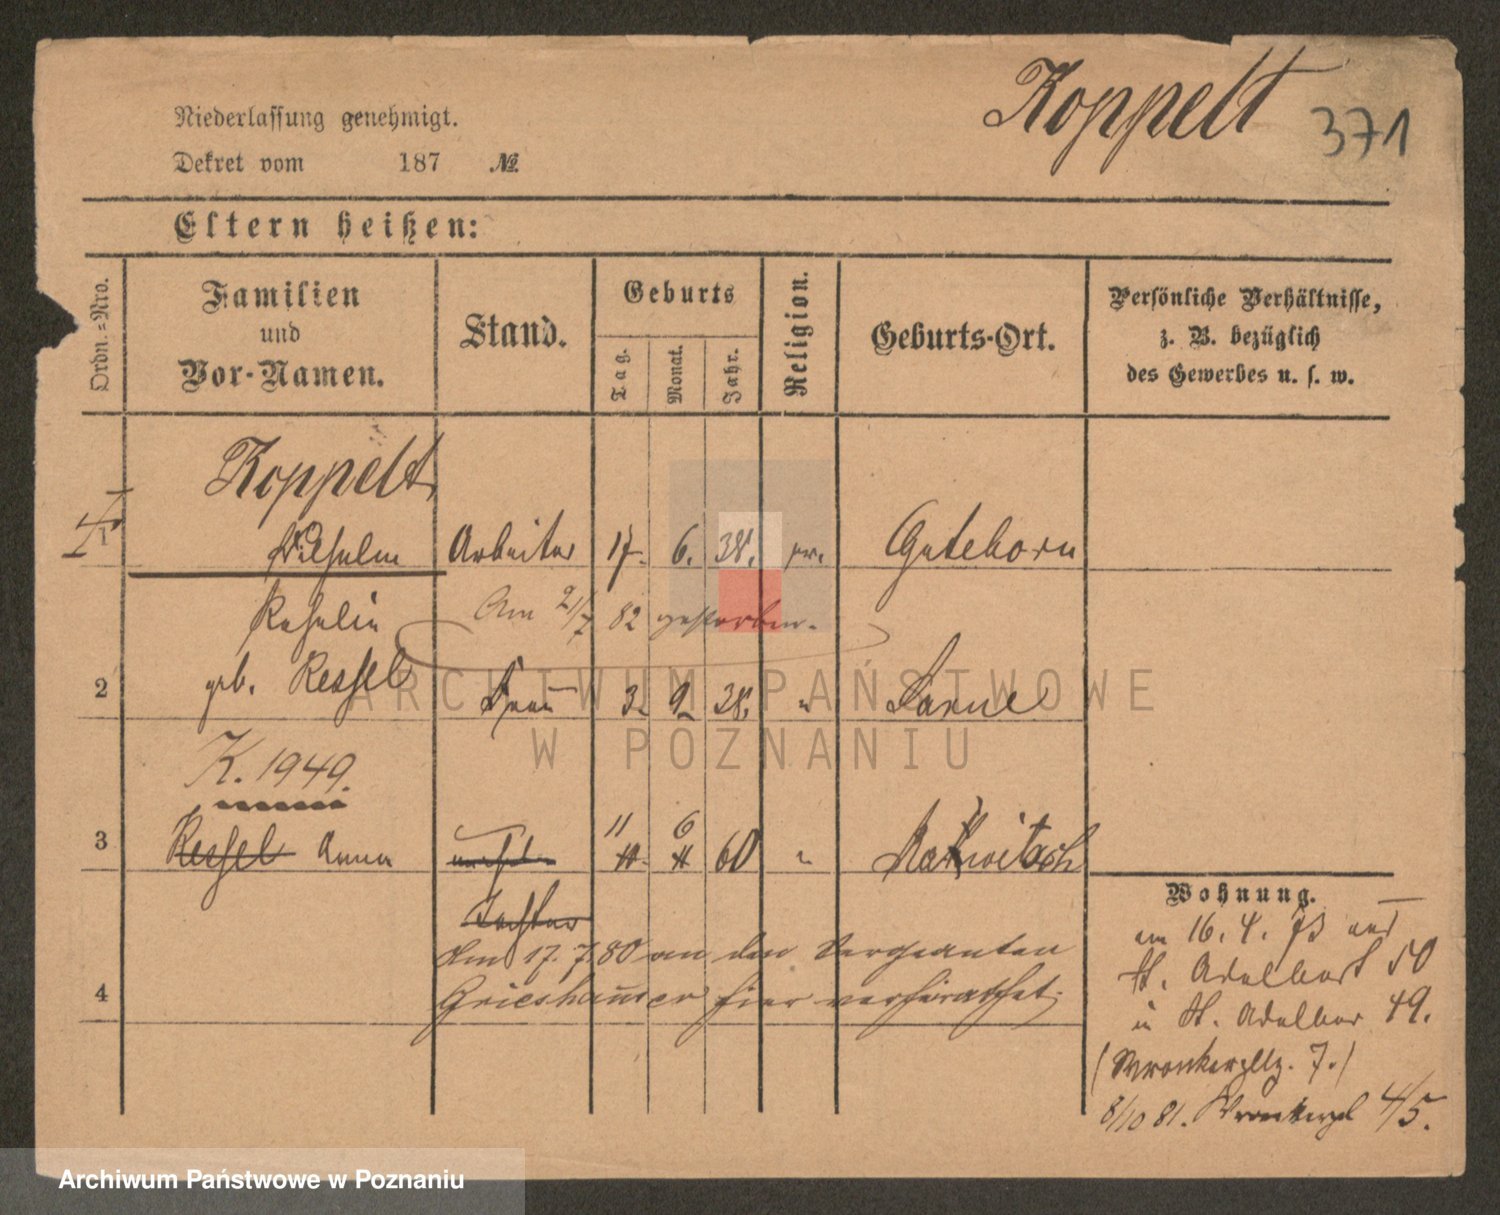 Koppelt 371
Niederlassung genehmigt.
Dekret vom 187 №
Eltern heißen:
Ordn.=Nro.
Familien
und
Vor-Namen.
Stand.
Geburts
Tag.
Monat.
Jahr.
Religion.
Geburts-Ort.
Persönliche Verhältnisse,
z. B. bezüglich
des Gewerbes u. s. w.
Koppelt
1 Wilhelm Arbeiter 17. 6. 38. Guteborn
Am 21/7 82 gestorben.
2 geb. Ressel Frau 3. 9. 38. " Sarne
K. 1949.
11 6
3 Ressel Anna 60 "
Tochter
Am 17. 7. 80 an den Sergeanten
4 Grieshammer hier verheirathet.
Wohnung.
am 16. 4. 73
St. Adalbert 50
in St. Adalber 49.
(Wronkerpltz. 7.)
8/10 81. 4/5.
ARCHIWUM PAŃSTWOWE
W POZNANIU
Archiwum Państwowe w Poznaniu